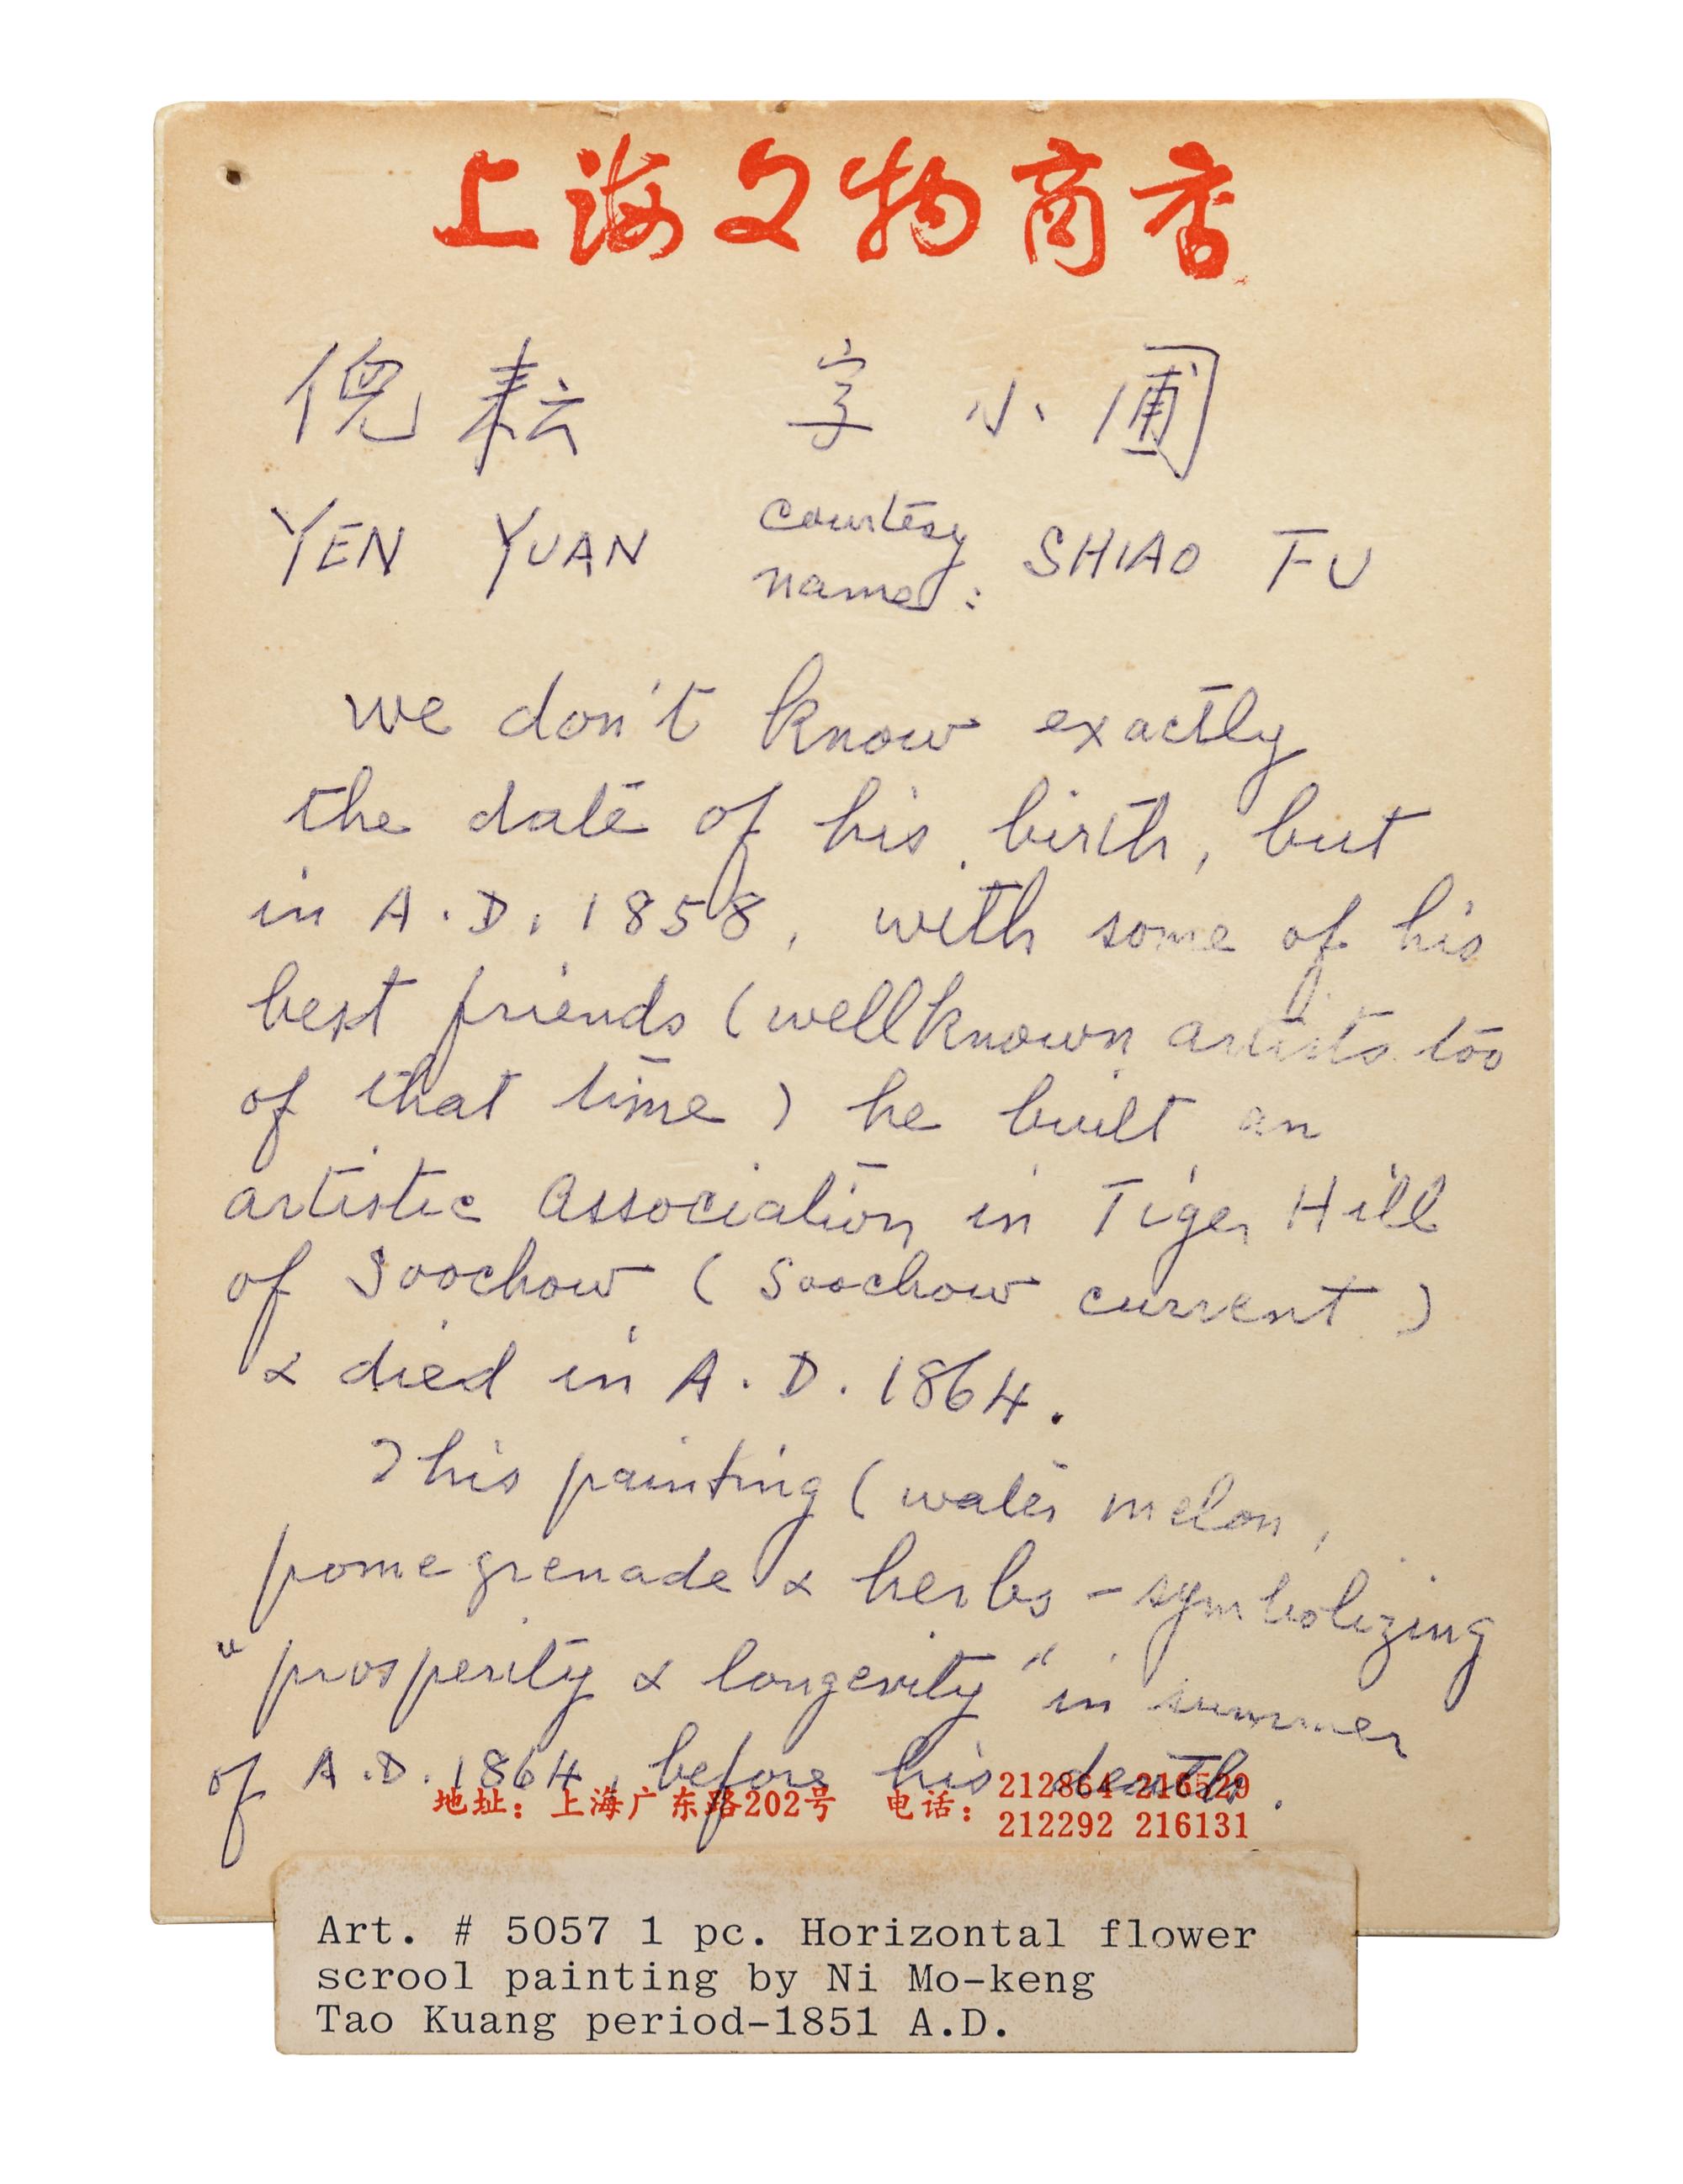 上海文物商店
倪 耘 字 小 圃
YEN YUAN courtesy name: SHIAO FU
we don't know exactly
the date of his birth, but
in A.D. 1858, with some of his
best friends (wellknown artists too
of that time) he built an
artistic Association in Tiger Hill
of Soochow (Soochow current)
& died in A.D. 1864.
This painting (water melon,
pomegrenade & herbs - symbolizing
"prosperity & longevity" in summer
of A.D. 1864, before his death.
地址：上海广东路202号 电话：212864 216529
212292 216131
Art. # 5057 1 pc. Horizontal flower
scrool painting by Ni Mo-keng
Tao Kuang period-1851 A.D.